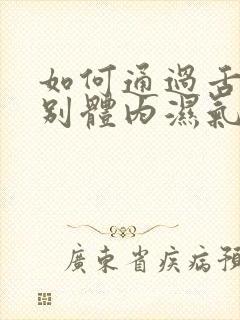 如何通過舌
別體內濕氣
廣東省疾病預